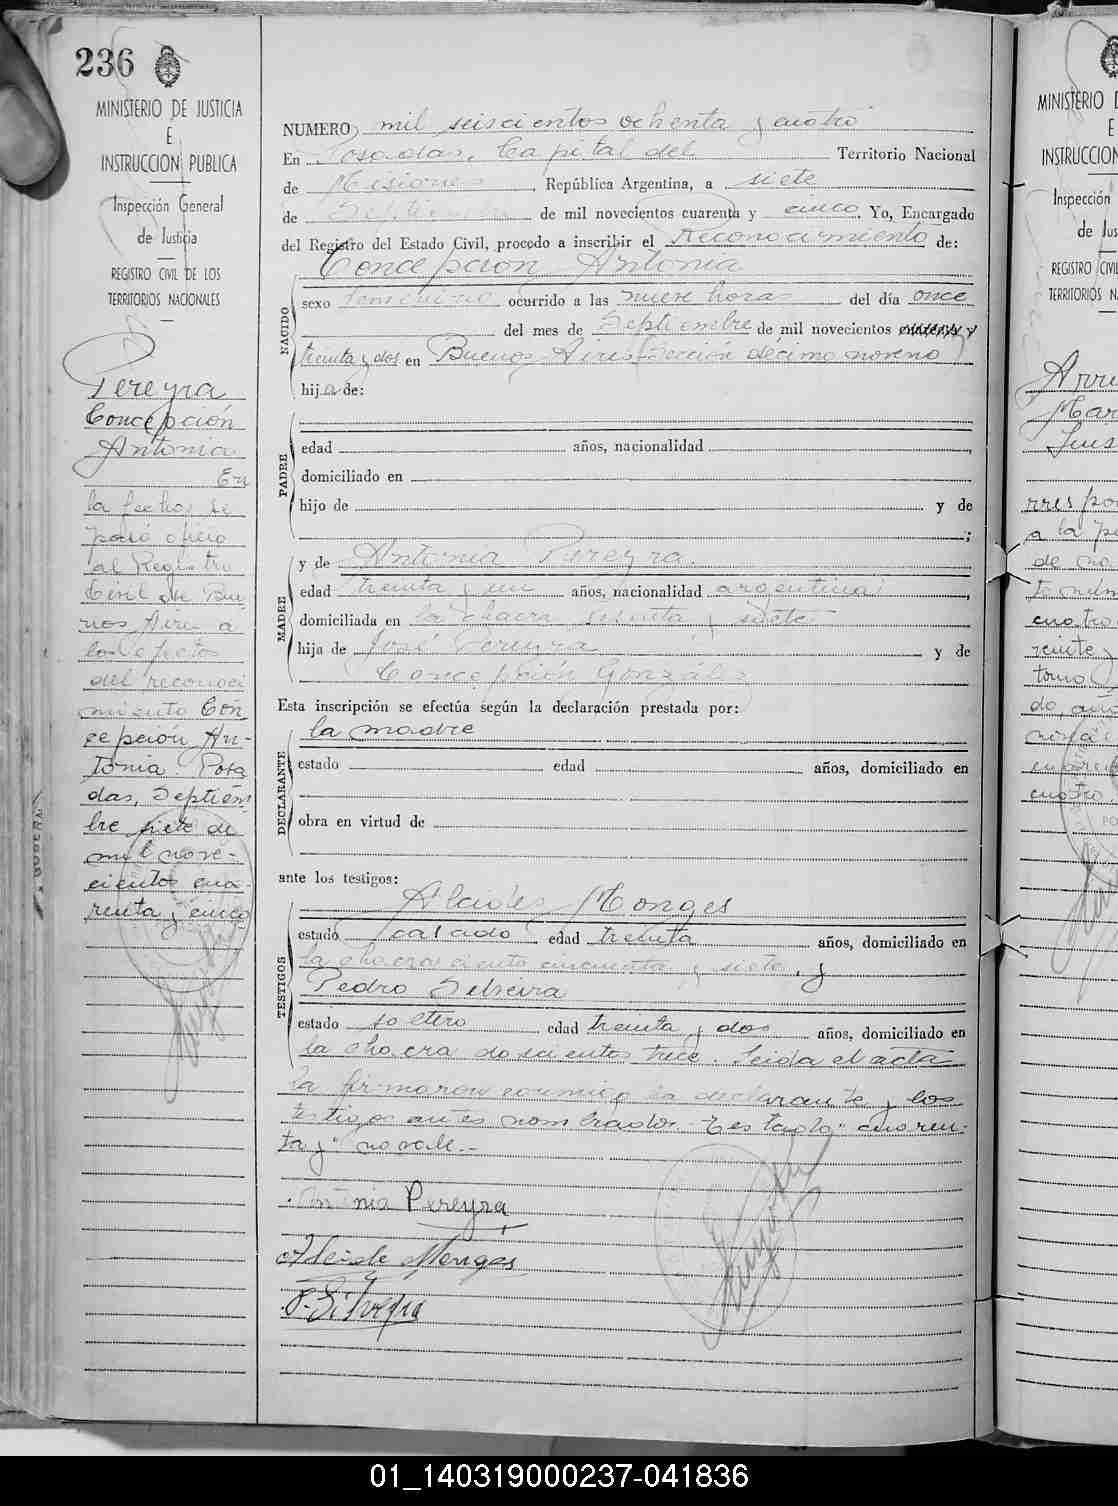 236
MINISTERIO DE JUSTICIA
E
INSTRUCCION PUBLICA
Inspección General
de Justicia
REGISTRO CIVIL DE LOS
TERRITORIOS NACIONALES
Pereyra
Concepción
Antonia
En
la fecha se
pasó oficio
al Registro
Civil de Bue
nos Aires a
los efectos
del reconoci
miento Con
cepción An-
tonia. Posa
das, Septiem
bre siete de
mil nove-
cientos cua-
renta y cinco
NUMERO mil seiscientos ochenta y cuatro
En Posadas, Capital del Territorio Nacional
de Misiones, República Argentina, a siete
de Septiembre de mil novecientos cuarenta y cinco. Yo, Encargado
del Registro del Estado Civil, procedo a inscribir el Reconocimiento de:
Concepcion Antonia
NACIDO
sexo femenino ocurrido a las nueve horas del día once
del mes de Septiembre de mil novecientos cuarenta y
treinta y dos en Buenos Aires Sección décimo noveno
hija de:
PADRE
edad años, nacionalidad ,
domiciliado en
hijo de y de
;
MADRE
y de Antonia Pereyra.
edad treinta y un años, nacionalidad argentina,
domiciliada en la chacra sesenta y siete
hija de José Pereyra y de
Concepción González
Esta inscripción se efectúa según la declaración prestada por:
DECLARANTE
la madre
estado edad años, domiciliado en
obra en virtud de
ante los testigos:
TESTIGOS
Alcides Monges
estado casado edad treinta años, domiciliado en
la chacra ciento cincuenta y siete, y
Pedro Silveira
estado soltero edad treinta y dos años, domiciliado en
la chacra doscientos trece. Leida el acta
la firmaron conmigo la declarante y los
testigos antes nombrados. Testado "cuaren-
ta y" no vale.-
Antonia Pereyra
Alcide Monges
P. Silveyra
MINISTERIO D
E
INSTRUCCION
Inspección
de Jus
REGISTRO CIV
TERRITORIOS N
01_140319000237-041836